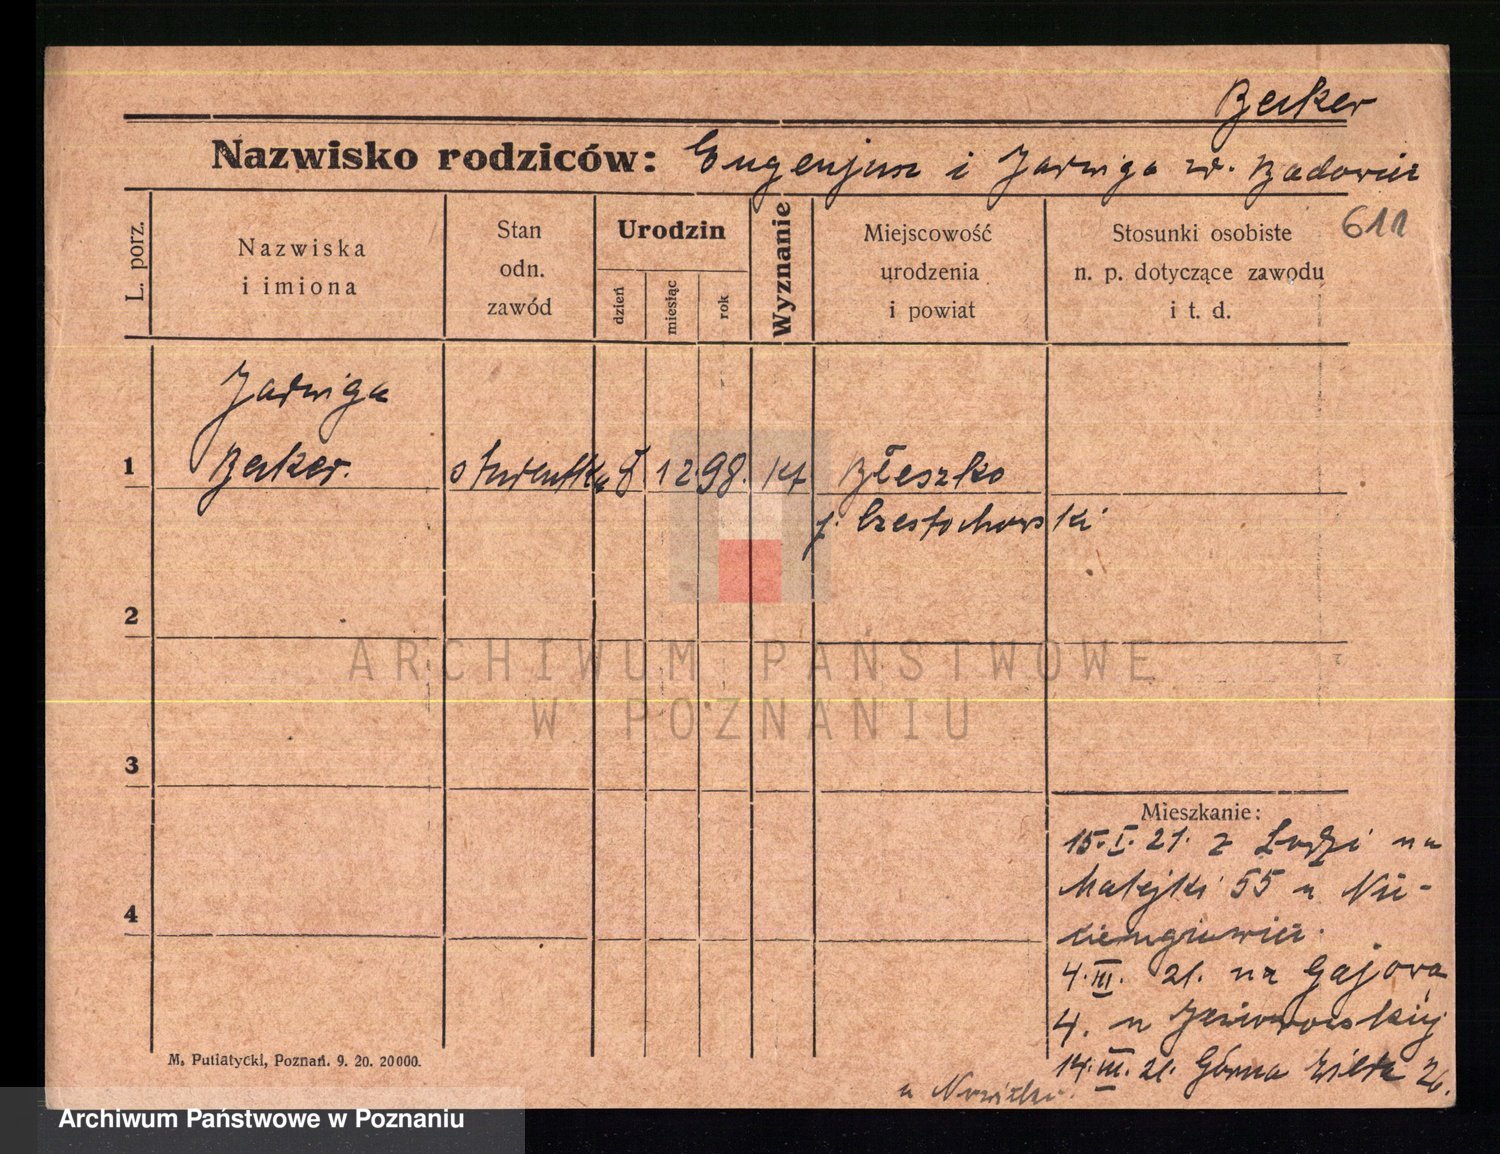 Berker
Nazwisko rodziców: Eugenjusz i Jadwiga z d. Badowicz
611
L. porz.
Nazwiska
i imiona
Stan
odn.
zawód
Urodzin
dzień
miesiąc
rok
Wyznanie
Miejscowość
urodzenia
i powiat
Stosunki osobiste
n. p. dotyczące zawodu
i t. d.
Jadwiga
1 Berker. studentka 8. 12. 98. kt Błeszko
p. Częstochowski
2
ARCHIWUM PAŃSTWOWE
W POZNANIU
3
4
Mieszkanie:
15. I. 21. z Łodzi na
Matejki 55 u
4. III. 21. na Gajową
4. u
14. III. 21. Górna Wilda
u
M. Putiatycki, Poznań. 9. 20. 20000.
Archiwum Państwowe w Poznaniu